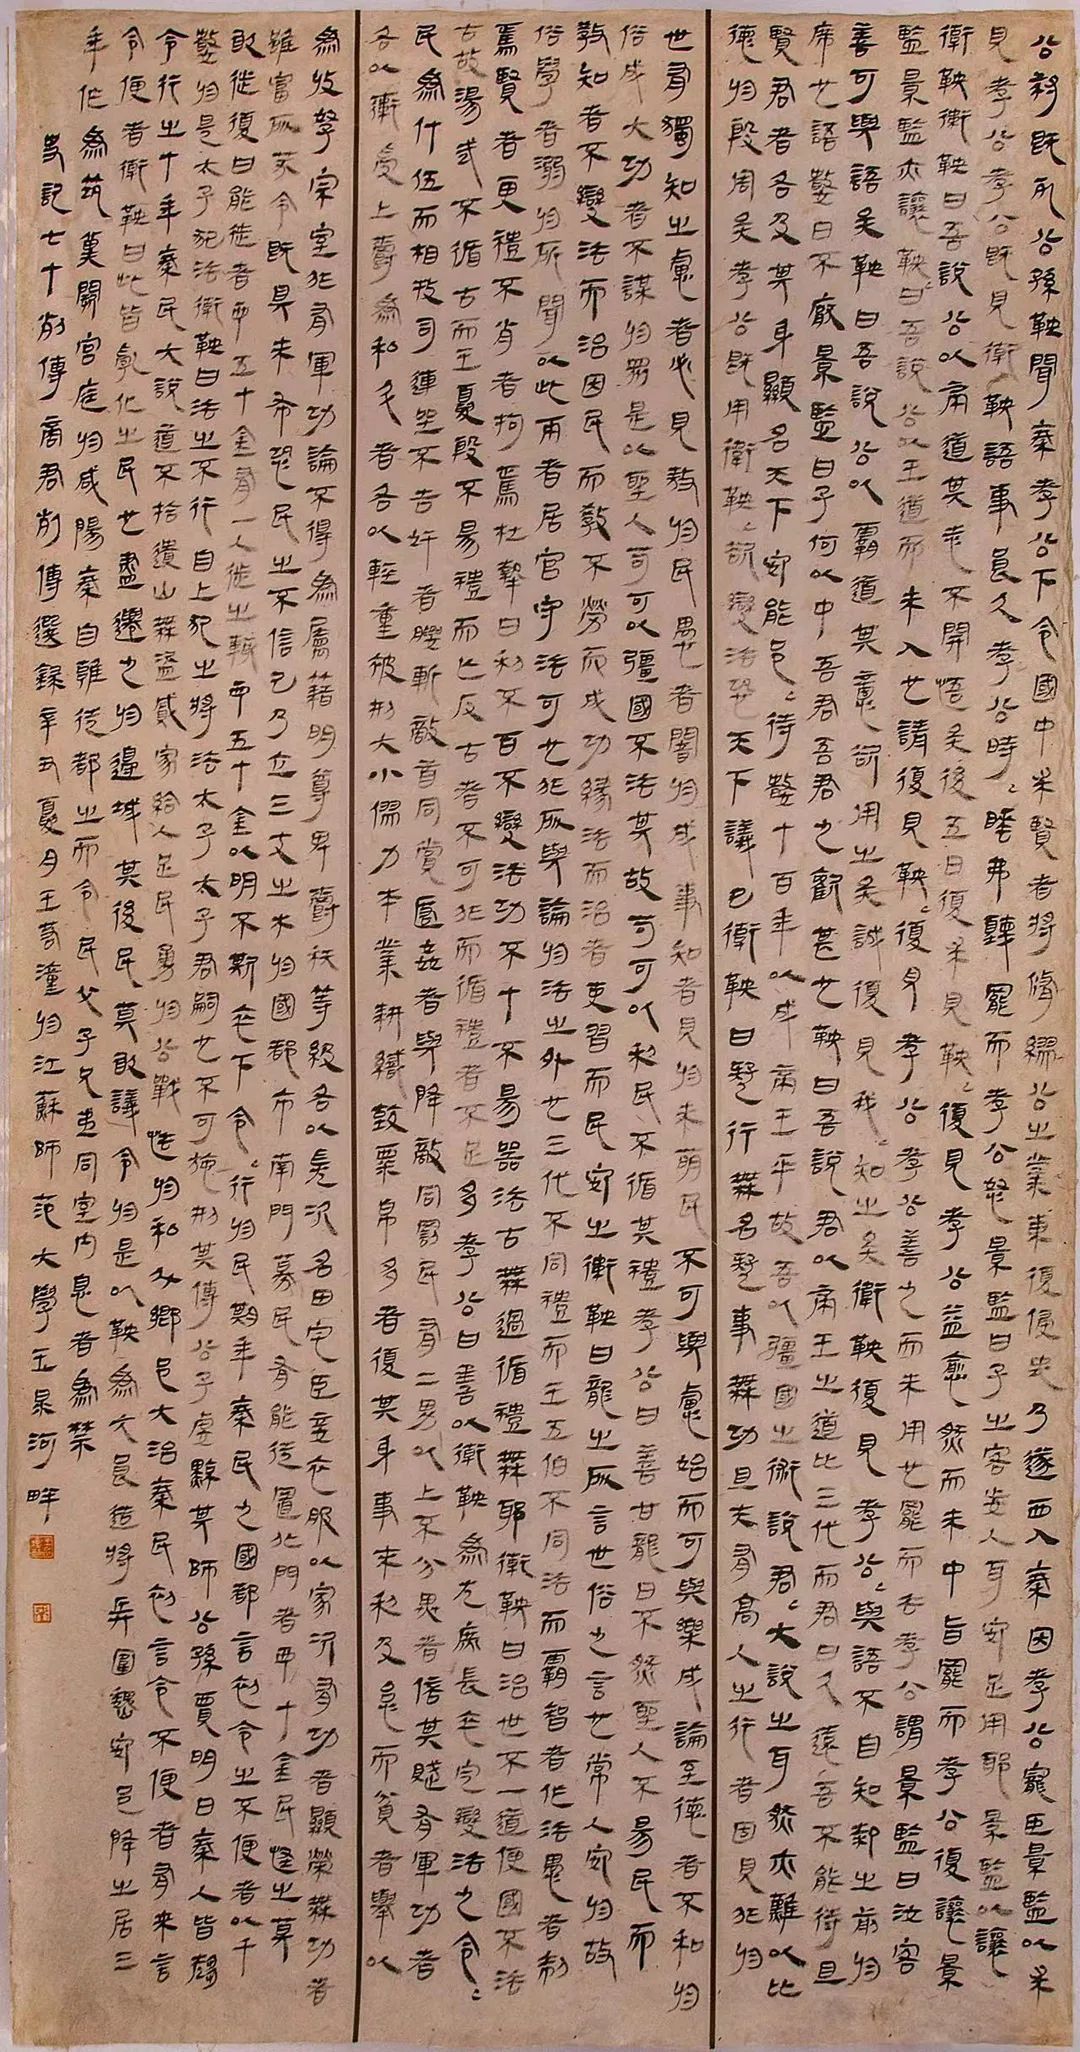 公叔既死公孫鞅聞秦孝公下令國中求賢者將脩繆公之業東復侵地乃遂西入秦因孝公寵臣景監以求
見孝公孝公既見衛鞅語事良久孝公時〻睡弗聽罷而孝公怒景監曰子之客妄人耳安足用耶景監以讓
衛鞅衛鞅曰吾說公以帝道其志不開悟矣後五日復求見鞅〻復見孝公益愈然而未中旨罷而孝公復讓景
監景監亦讓鞅〻曰吾說公以王道而未入也請復見鞅〻復見孝公孝公善之而未用也罷而去孝公謂景監曰汝客
善可與語矣鞅曰吾說公以霸道其意欲用之矣誠復見我〻知之矣衛鞅復見孝公〻與語不自知厀之前於
席也語數日不厭景監曰子何以中吾君吾君之歡甚也鞅曰吾說君以帝王之道比三代而君曰久遠吾不能待且
賢君者各及其身顯名天下安能邑〻待數十百年以成帝王乎故吾以彊國之術說君〻大說之耳然亦難以比
德於殷周矣孝公既用衛鞅〻欲變法恐天下議己衛鞅曰疑行無名疑事無功且夫有高人之行者固見非於
世有獨知之慮者必見敖於民愚者闇於成事知者見於未萌民不可與慮始而可與樂成論至德者不和於
俗成大功者不謀於眾是以聖人苟可以彊國不法其故苟可以利民不循其禮孝公曰善甘龍曰不然聖人不易民而
教知者不變法而治因民而教不勞而成功緣法而治者吏習而民安之衛鞅曰龍之所言世俗之言也常人安於故
俗學者溺於所聞以此兩者居官守法可也非所與論於法之外也三代不同禮而王五伯不同法而霸智者作法愚者制
焉賢者更禮不肖者拘焉杜摯曰利不百不變法功不十不易器法古無過循禮無邪衛鞅曰治世不一道便國不法
古故湯武不循古而王夏殷不易禮而亡反古者不可非而循禮者不足多孝公曰善以衛鞅為左庶長卒定變法之令〻
民為什伍而相牧司連坐不告奸者腰斬敵首同賞匿姦者與降敵同罰民有二男以上不分異者倍其賦有軍功者
各以衛受上爵為私鬥者各以輕重被刑大小僇力本業耕織致粟帛多者復其身事末利及怠而貧者舉以
為收孥宗室非有軍功論不得為屬籍明尊卑爵秩等級各以差次名田宅臣妾衣服以家次有功者顯榮無功者
雖富所芬令既具未布恐民之不信己乃立三丈之木於國都市南門募民有能徙置北門者予十金民怪之莫
敢徙復曰能徙者予五十金有一人徙之輒予五十金以明不欺卒下令〻行於民期年秦民之國都言初令之不便者以千
數於是太子犯法衛鞅曰法之不行自上犯之將法太子太子君嗣也不可施刑其傅公子虔黥其師公孫賈明日秦人皆趨
令行之十年秦民大說道不拾遺山無盜賊家給人足民勇於公戰怯於私鬥鄉邑大治秦民初言令不便者有來言
令便者衛鞅曰此皆亂化之民也盡遷之於邊城其後民莫敢議令於是以鞅為大良造將兵圍魏安邑降之居三
年作為筑冀闕宮庭於咸陽秦自雍徙都之而令民父子兄弟同室內息者為禁
史記七十列傳商君列傳選錄辛丑夏月王奇潼於江蘇師范大學玉泉河畔